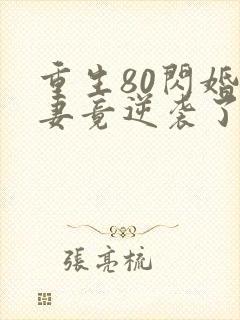 重生80閃婚
妻竟逆袭了
張亮梳